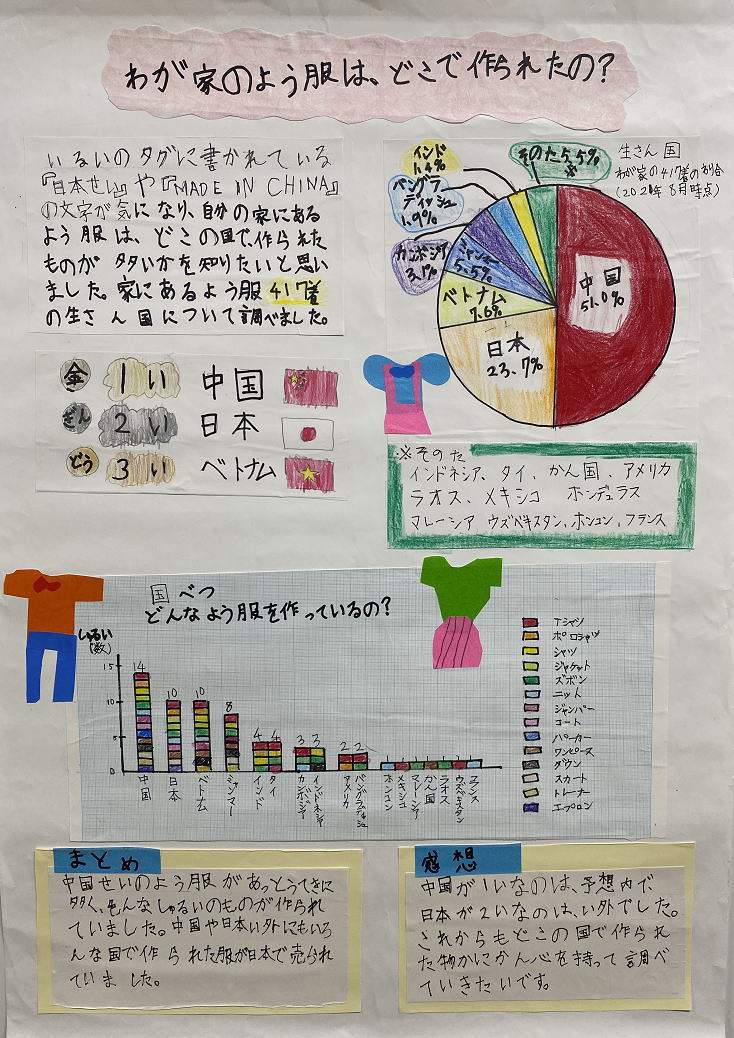 わが家のよう服は、どこで作られたの?
いるいのタグに書かれている
『日本せい』や『MADE IN CHINA』
の文字が気になり、自分の家にある
よう服は、どこの国で、作られた
ものが多いかを知りたいと思い
ました。家にあるよう服417着
の生さん国について調べました。
金 1い 中国
ぎん 2い 日本
どう 3い ベトナム
生さん国
わが家の417着の割合
インド
1.4%
そのた5.5%
※
バングラ
ディッシュ
1.9%
カンボジア
3.1%
ミャンマー
5.5%
ベトナム
7.6%
日本
23.7%
中国
51.0%
※そのた
インドネシア、タイ、かん国、アメリカ
ラオス、メキシコ ホンデュラス
マレーシア、ウズベキスタン、ホンコン、フランス
国べつ
どんなよう服を作っているの?
しゅるい
(数)
15
10
5
0
14
10
10
8
4
4
3
3
2
2
中国
日本
ベトナム
ミャンマー
インド
タイ
カンボジア
インドネシア
アメリカ
バングラディッシュ
ホンコン
メキシコ
マレーシア
かん国
ラオス
ウズベキスタン
フランス
Tシャツ
ポロシャツ
シャツ
ジャケット
ズボン
ニット
ジャンパー
コート
パーカー
ワンピース
ダウン
スカート
トレーナー
エプロン
まとめ
中国せいのよう服があっとうてきに
多く、色んなしゅるいのものが作られ
ていました。中国や日本い外にもいろ
んな国で作られた服が日本で売られ
ていました。
感想
中国が1いなのは、予想内で、
日本が2いなのは、い外でした。
これからもどこの国で作られ
た物かにかん心を持って調べ
ていきたいです。